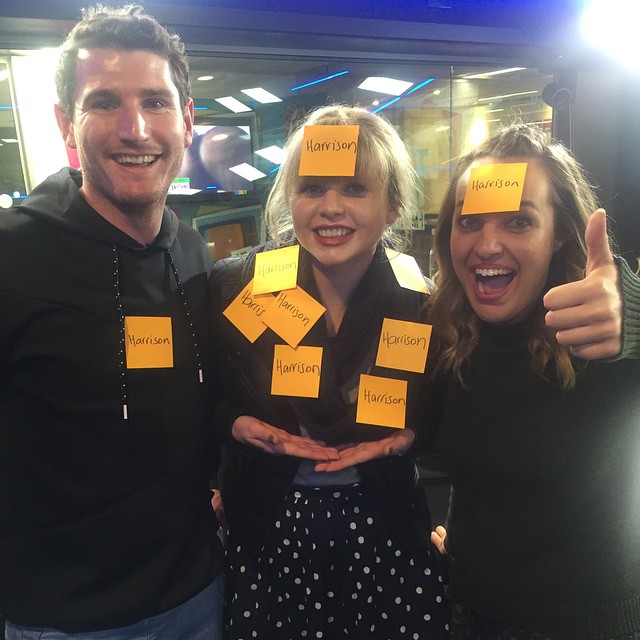 Harrison
Harrison
Harrison
Harris
Harrison
Harrison
Harrison
Harrison
Harrison